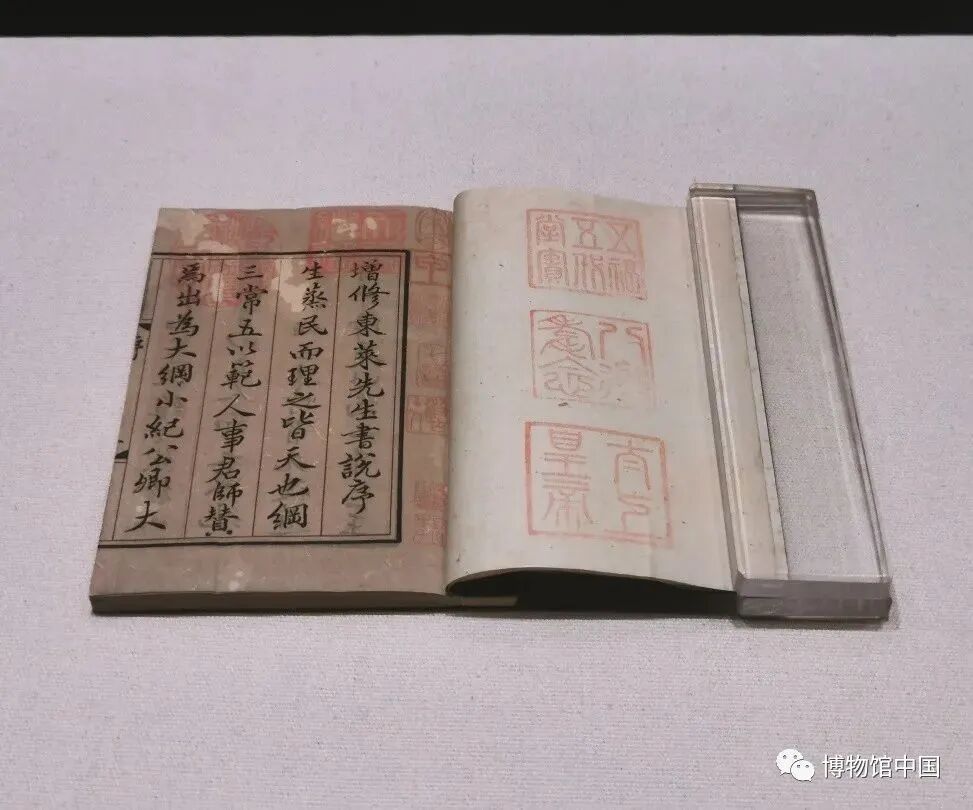 五福五代堂寶
八徵耄念
太上皇帝
增修東萊先生書說序
生蒸民而理之皆天也綱
三常五以範人事君師贊
焉出為大綱小紀公卿大
博物馆中国